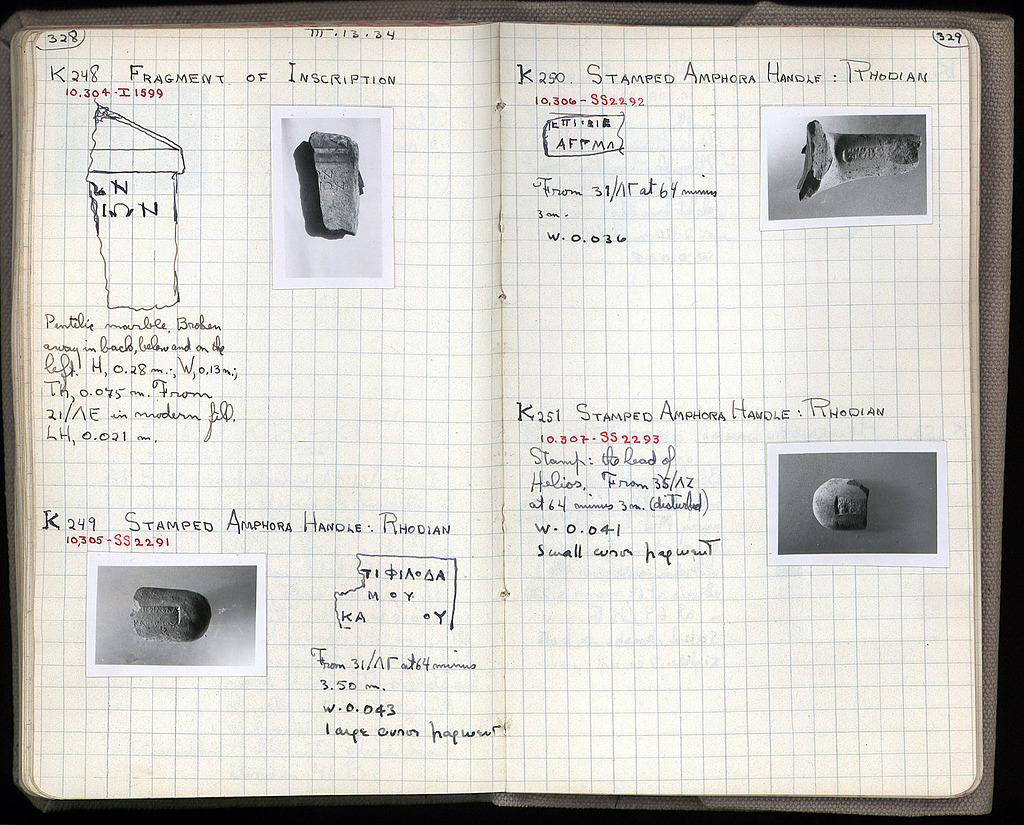 328
III.13.34
K 248 FRAGMENT OF INSCRIPTION
10,304-I 1599
Pentelic marble, Broken
away in back, below and on the
left. H, 0.28 m.; W, 0.13 m.;
Th, 0.075 m. From
21/ΛΕ in modern fill.
LH, 0.021 m.
K 249 STAMPED AMPHORA HANDLE: RHODIAN
10,305-SS 2291
ΤΙΦΙΛΟΔΑ
ΜΟΥ
ΚΑ ΟΥ
From 31/ΛΓ at 64 minus
3.50 m.
W. 0.043
large curved fragment
329
K 250. STAMPED AMPHORA HANDLE: RHODIAN
10,306-SS 2292
From 31/ΛΓ at 64 minus
3 m.
W. 0.036
K 251 STAMPED AMPHORA HANDLE: RHODIAN
10,307-SS 2293
Stamp: the head of
Helios. From 35/ΛΖ
at 64 minus 3 m. (disturbed)
W. 0.041
small fragment